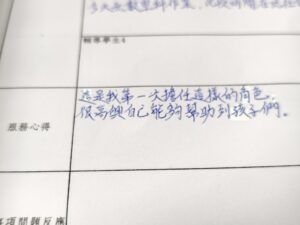 輔導學生4
這是我第一次擔任這樣的角色,
服務心得
很高興自己能夠幫助到孩子們。
事項問題反應